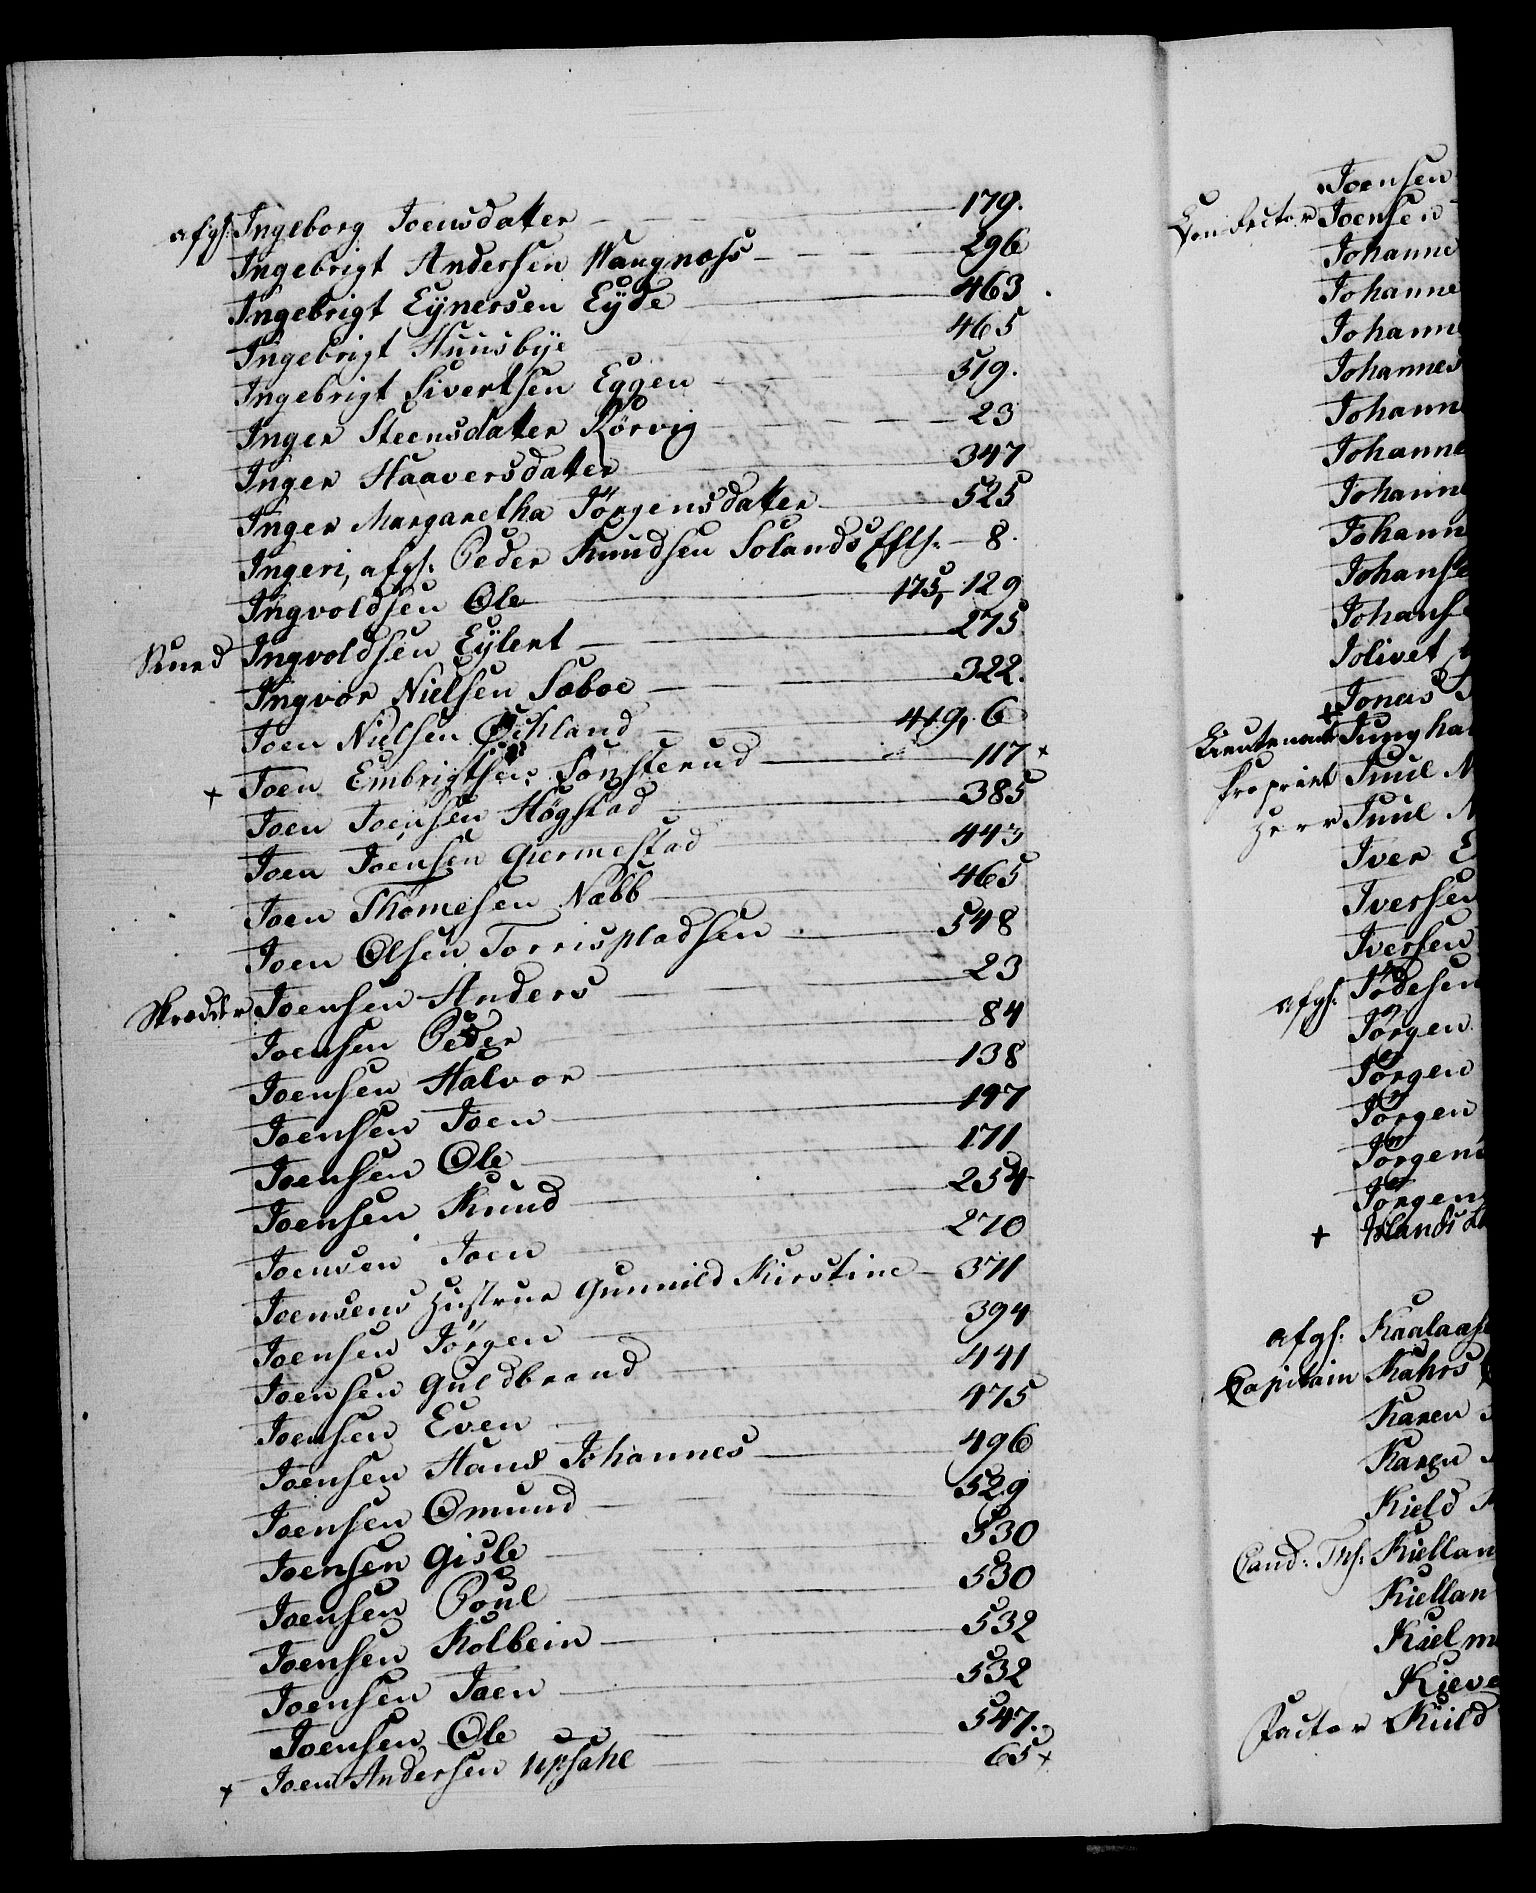 afgl: Ingeborg Joensdatter — 179.
Ingebrigt Andersen Waugnæss — 296
Ingebrigt Eynersen Eyde — 463
Ingebrigt Huusbye — 465
Ingebrigt Sivertsen Eggen — 519.
Inger Steensdatter Rörvig — 23
Inger Haaversdatter — 347
Inger Margaretha Jörgensdatter — 525
Ingeri, afgl: Peder Knudsen Solands Eftl: — 8.
Ingvoldsen Ole — 175, 129
Knud Ingvoldsen Eylert — 275
Ingvor Nielsen Sæboe — 322.
Joen Nielsen Öchland — 419, 6
+ Joen Embrigtsen Sonsterud — 117 +
Joen Joensen Högstad — 385
Joen Joensen Giermestad — 443
Joen Thomesen Næbb — 465
Joen Olsen Torrispladsen — 548
Skrædder Joensen Anders — 23
Joensen Peder — 84
Joensen Halvor — 138
Joensen Joen — 197
Joensen Ole — 171
Joensen Knud — 254
Joensen Joen — 270
Joensens Hustrue Gunnild Kirstine — 371
Joensen Jörgen — 394
Joensen Guldbrand — 441
Joensen Even — 475
Joensen Hans Johannes — 496
Joensen Omund — 529
Joensen Gisle — 530
Joensen Poul — 530
Joensen Kolbein — 532
Joensen Joen — 532
Joensen Ole — 547.
+ Joen Andersen Upsahl — 65 +
Joensen
Conducteur Joensen
Johanne
Johanne
Johann
Johannes
Johann
Johanne
Johann
Johann
Johanse
Johans
Jolivet
Jonas
Lieutenant Jungha
Propriet Juul N
Herr Juul N
Iver E
Iversen
Iversen
afgl: Jödesen
Jörgen
Jörgen
Jörgen
Jörgens
Jörgen
+ Islands
afgl: Kaalaas
Capitain Kahrs
Karen
Karen
Kield
Cand: Th: Kiellan
Kiellan
Kielm
Kieve
Factor Kiild